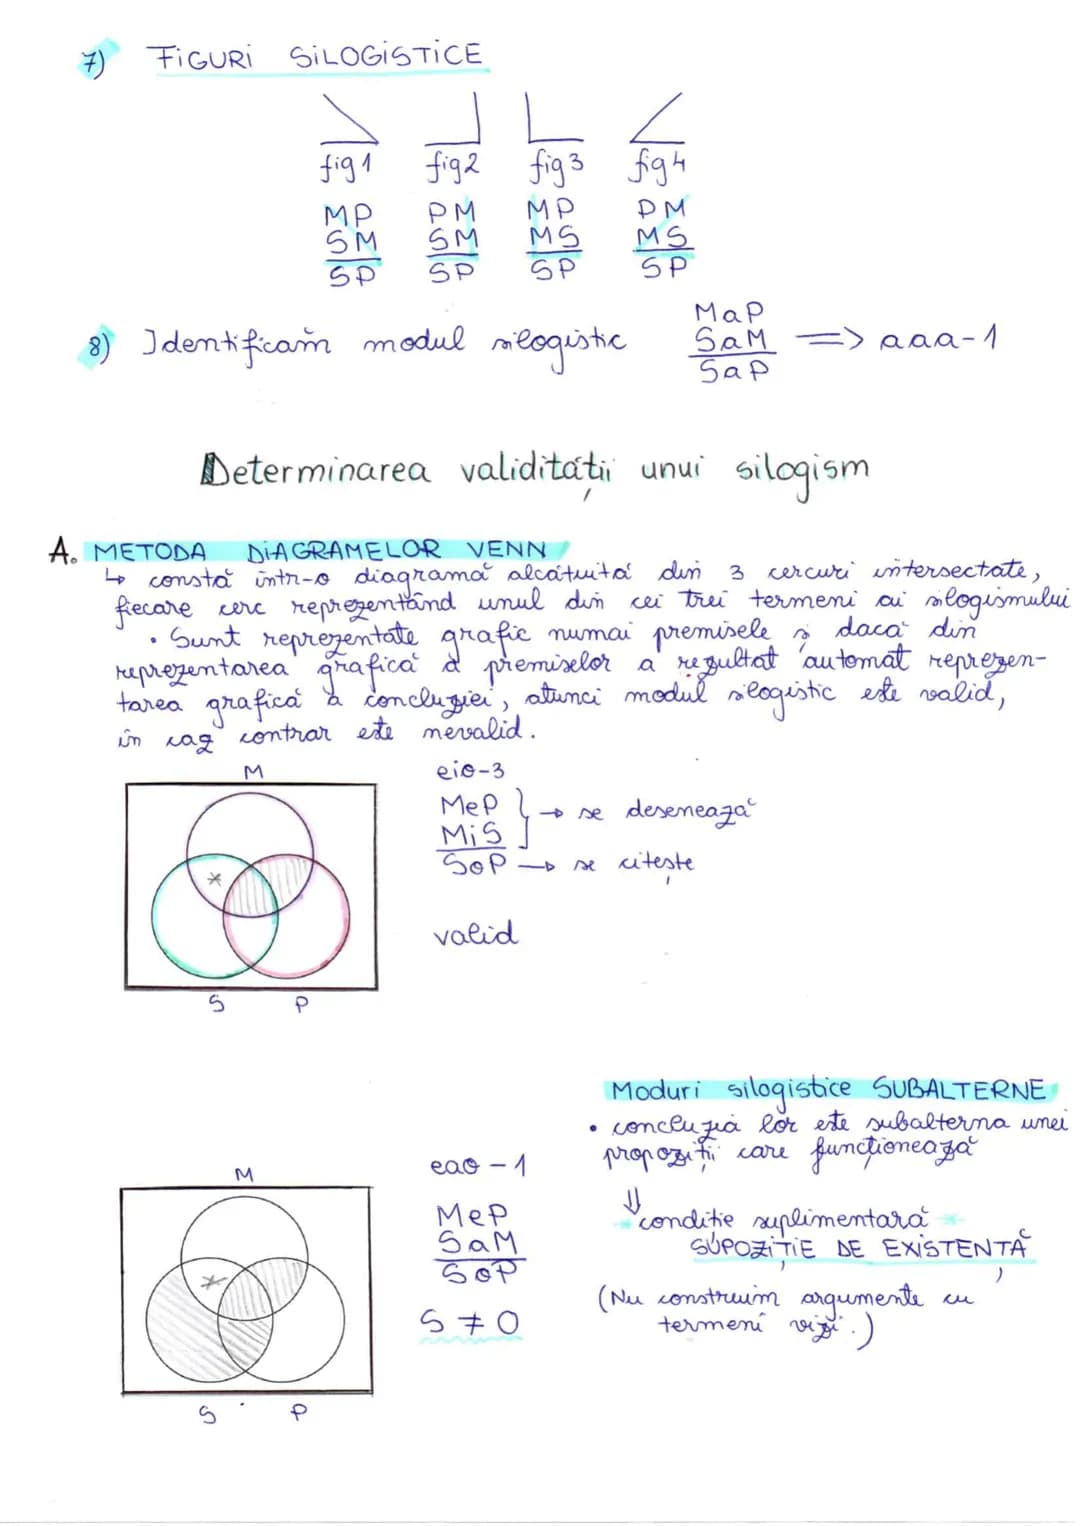 7) FIGURI SILOGISTICE
fig 1 fig 2 fig 3 fig 4
MP PM MP PM
SM SM MS MS
SP SP SP SP
8) Identificăm modul silogistic
MaP
SaM => aaa-1
SaP
Determinarea validității unui silogism
A. METODA DIAGRAMELOR VENN
↳ constă într-o diagramă alcătuită din 3 cercuri intersectate,
fiecare cerc reprezentând unul din cei trei termeni ai silogismului
• Sunt reprezentate grafic numai premisele și dacă din
reprezentarea grafică a premiselor a rezultat automat reprezen-
tarea grafică a concluziei, atunci modul silogistic este valid,
în caz contrar este nevalid.
M
S P
eio-3
MeP
MiS } → se desenează
SoP → se citește
valid
Moduri silogistice SUBALTERNE
• concluzia lor este subalterna unei
propoziții care funcționează
⇓
* condiție suplimentară *
SUPOZIȚIE DE EXISTENȚĂ
(Nu construim argumente cu
termeni vizi.)
M
S P
eao-1
MeP
SaM
SoP
S ≠ 0